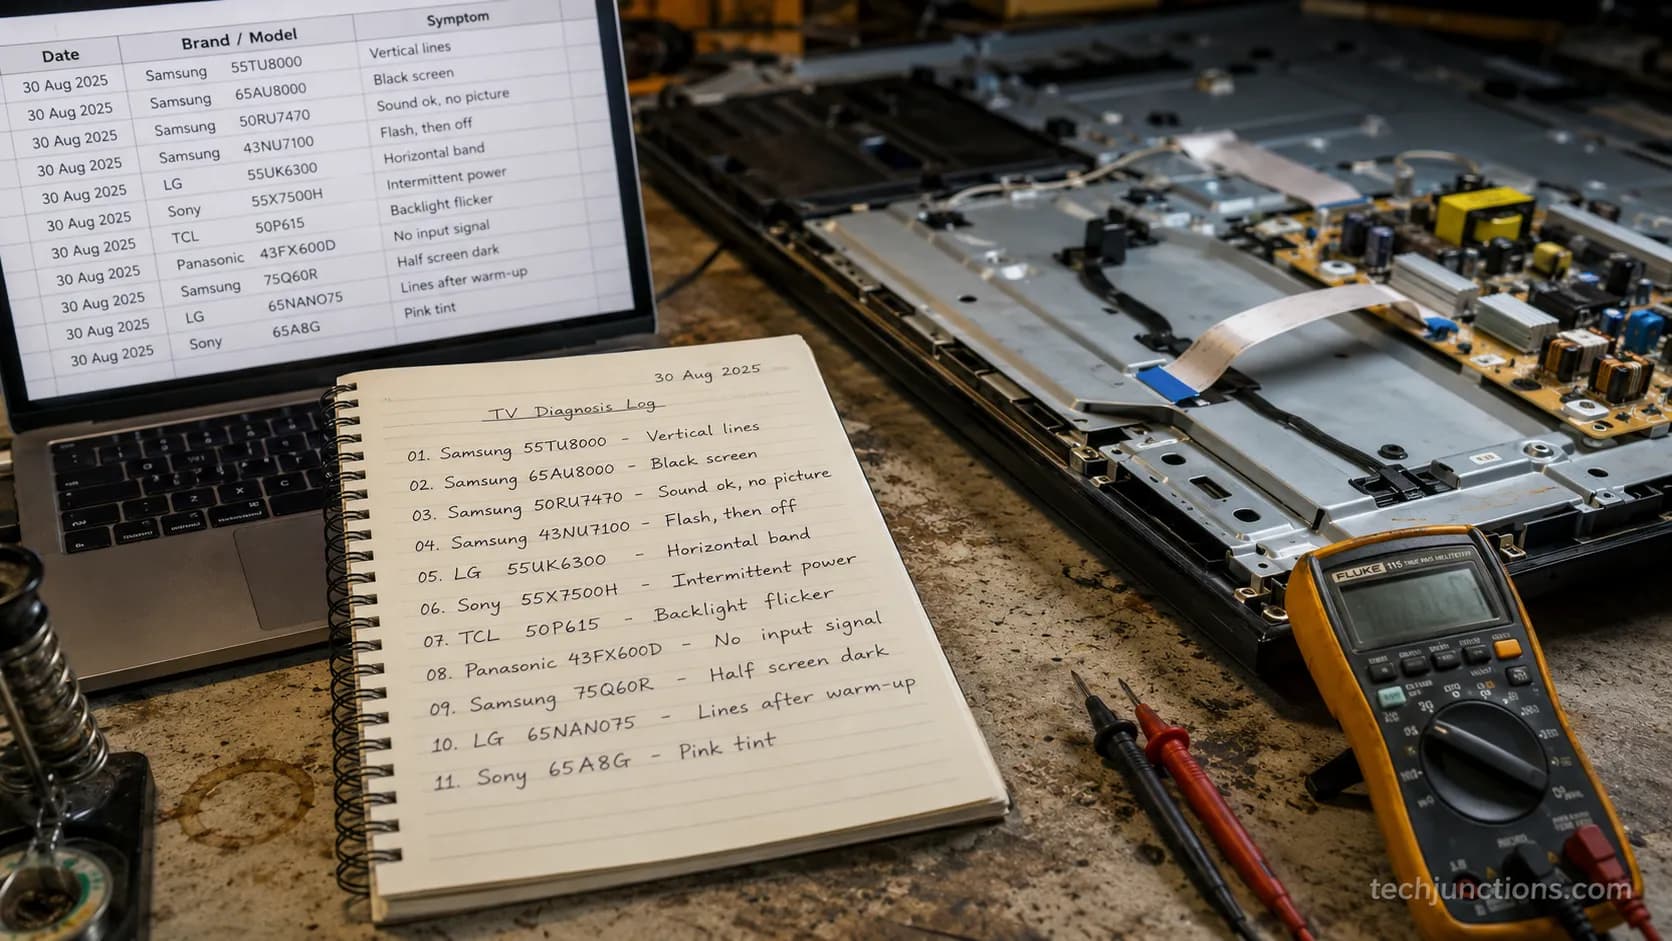 Date Brand / Model Symptom
30 Aug 2025 Samsung 55TU8000 Vertical lines
30 Aug 2025 Samsung 65AU8000 Black screen
30 Aug 2025 Samsung 50RU7470 Sound ok, no picture
30 Aug 2025 Samsung 43NU7100 Flash, then off
30 Aug 2025 LG 55UK6300 Horizontal band
30 Aug 2025 Sony 55X7500H Intermittent power
30 Aug 2025 TCL 50P615 Backlight flicker
30 Aug 2025 Panasonic 43FX600D No input signal
30 Aug 2025 Samsung 75Q60R Half screen dark
30 Aug 2025 LG 65NANO75 Lines after warm-up
30 Aug 2025 Sony 65A8G Pink tint
30 Aug 2025
TV Diagnosis Log
01. Samsung 55TU8000 – Vertical lines
02. Samsung 65AU8000 – Black screen
03. Samsung 50RU7470 – Sound ok, no picture
04. Samsung 43NU7100 – Flash, then off
05. LG 55UK6300 – Horizontal band
06. Sony 55X7500H – Intermittent power
07. TCL 50P615 – Backlight flicker
08. Panasonic 43FX600D – No input signal
09. Samsung 75Q60R – Half screen dark
10. LG 65NANO75 – Lines after warm-up
11. Sony 65A8G – Pink tint
FLUKE 115 TRUE RMS MULTIMETER
techjunctions.com